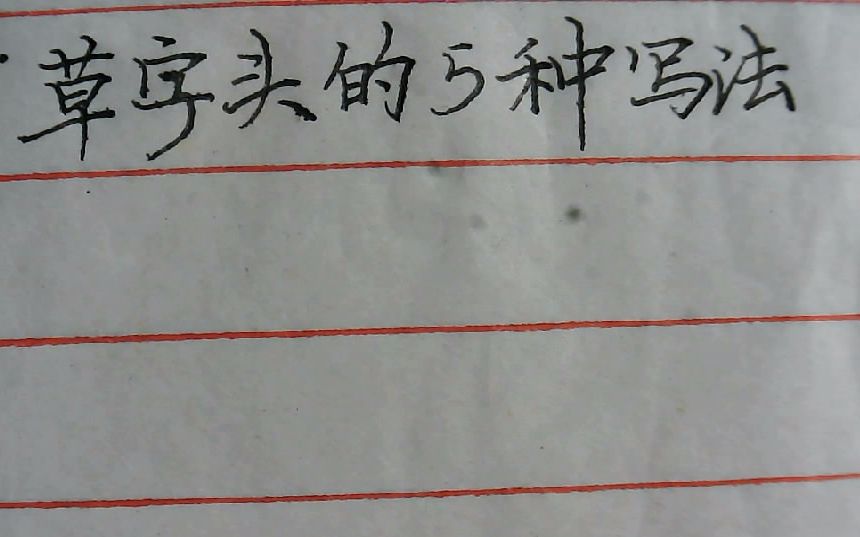 草字头的5种写法